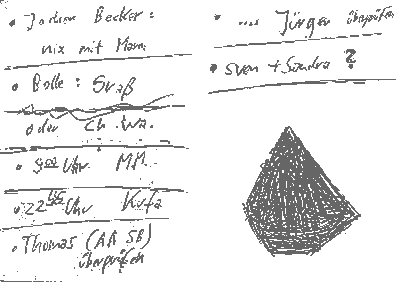 • Jochen Becker:
nix mit Mam.
• Bolle: Spaß
oder Ch. Wa.
• 9⁰⁰ Uhr MM.
• 22⁴⁵ Uhr Kufa
• Thomas (AA SB)
überprüfen
• .... Jürgen überprüfen
• Sven + Sandra ?